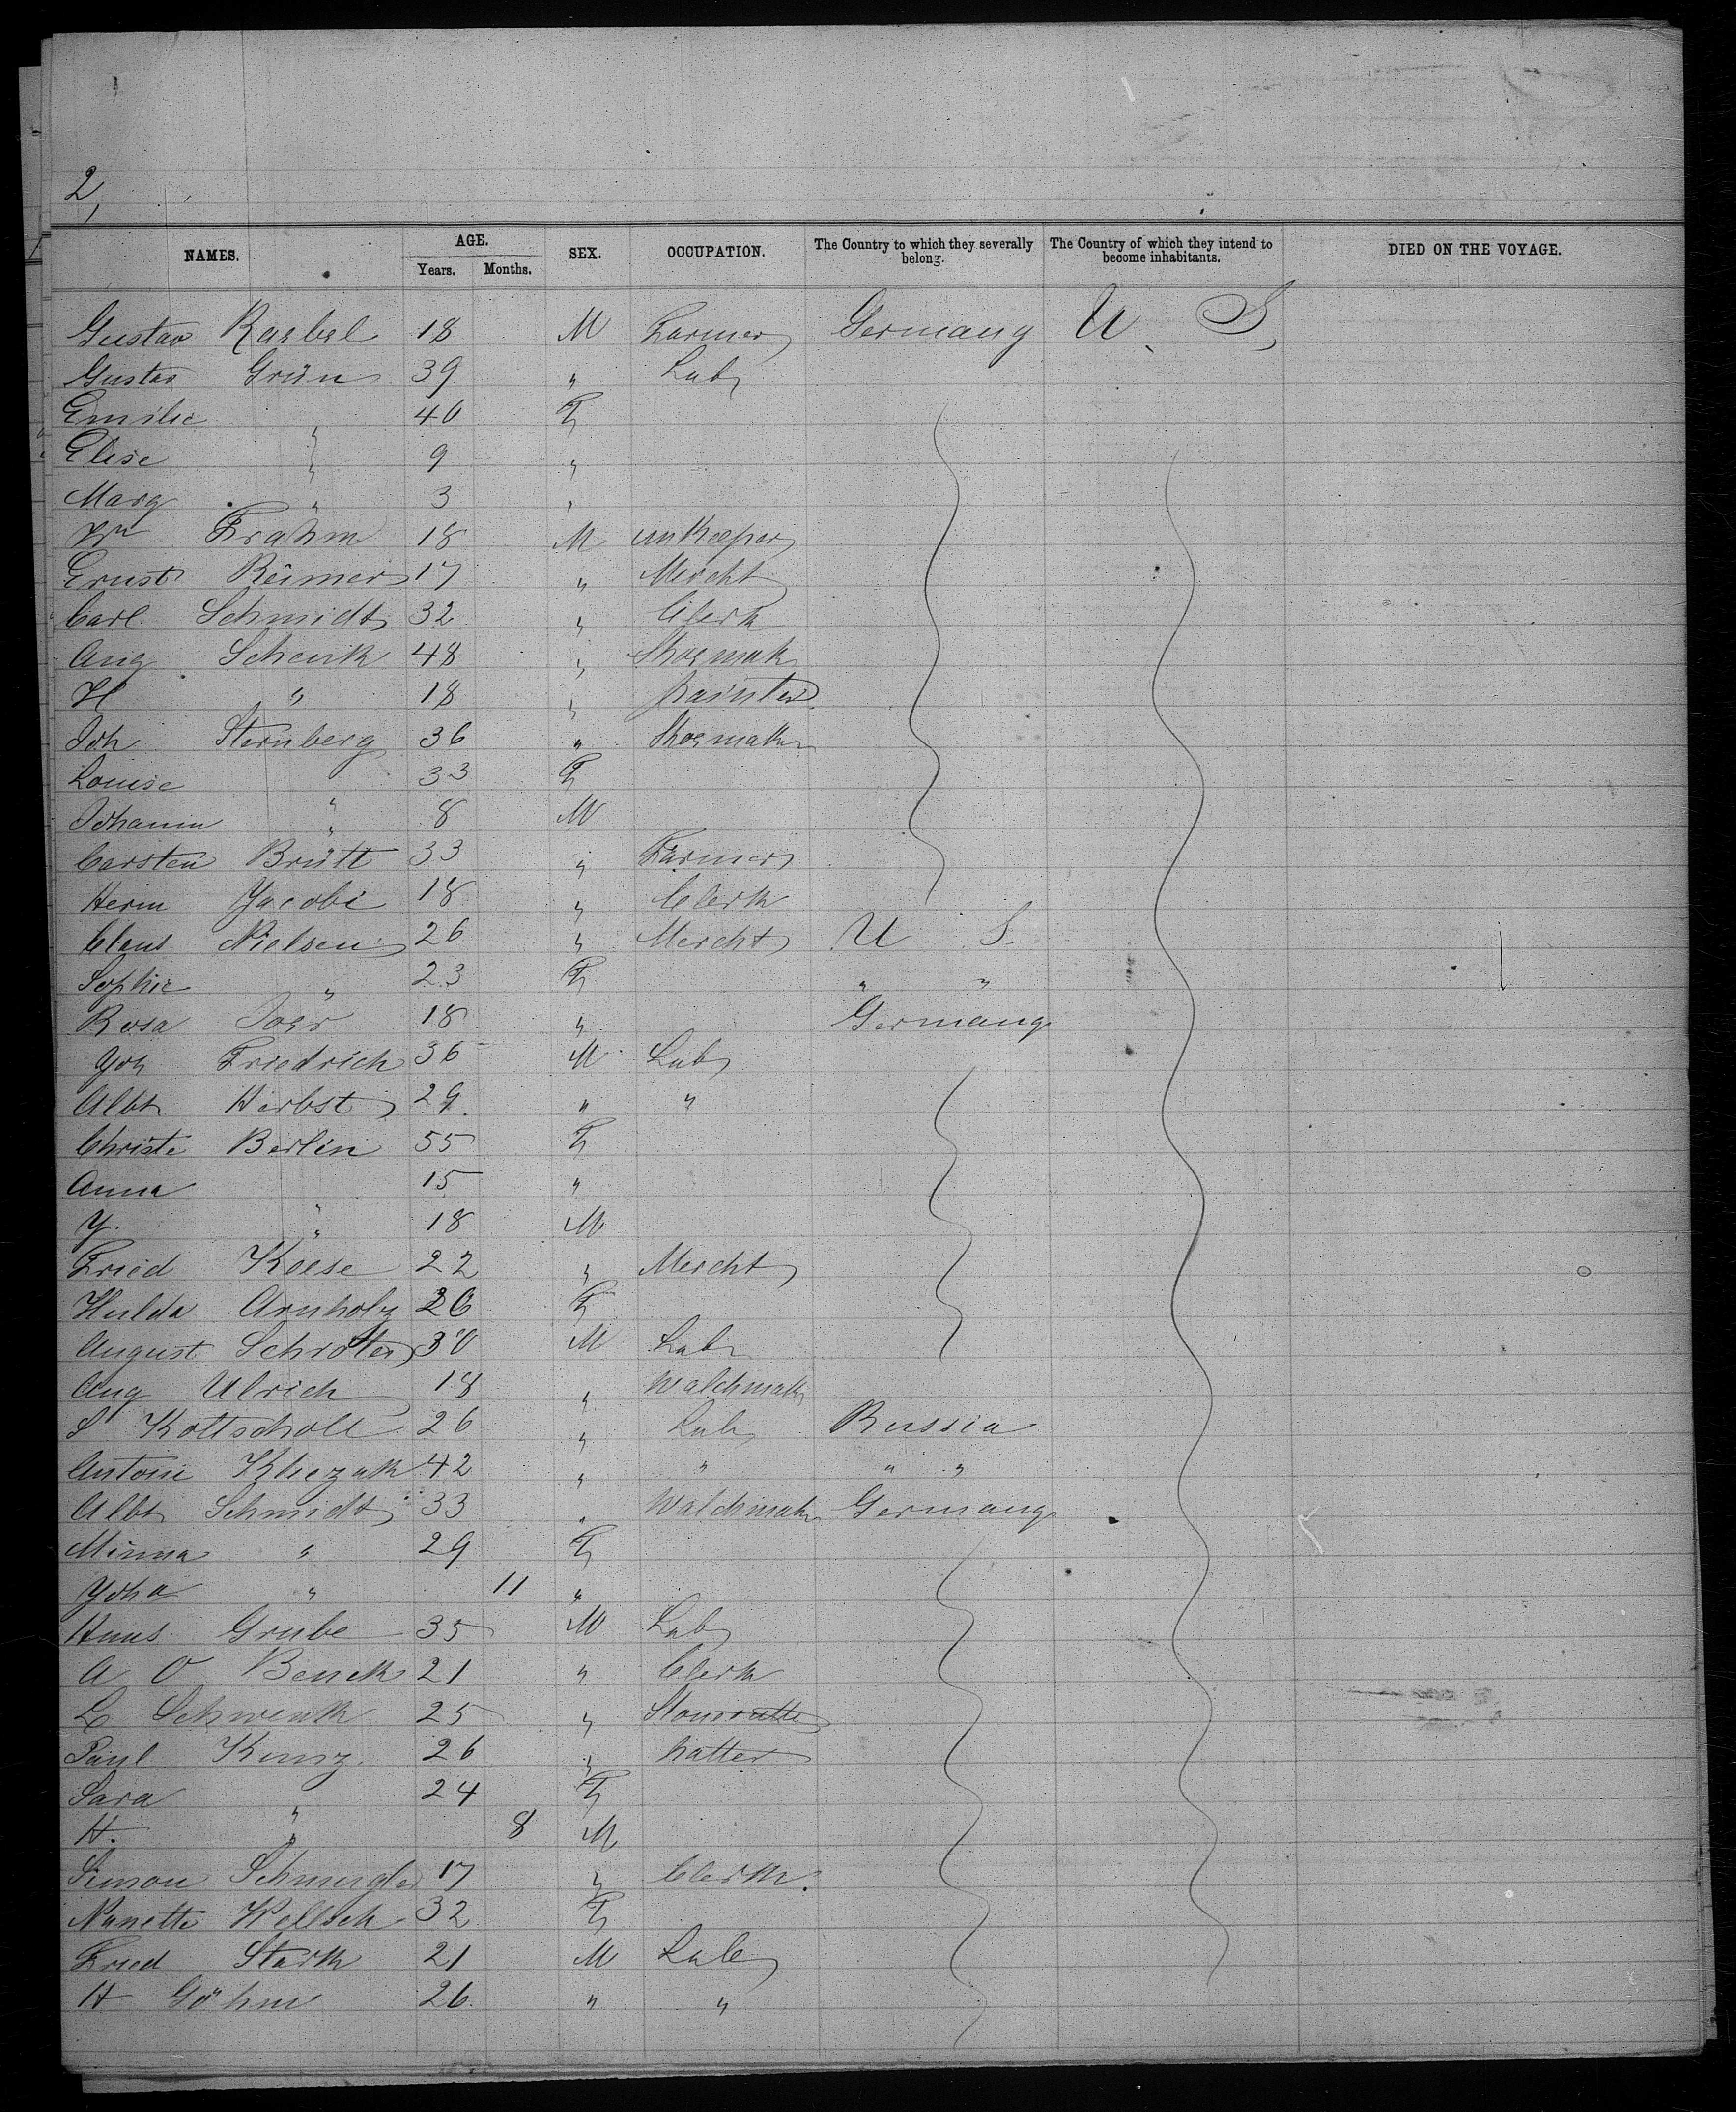 2,
NAMES. AGE. SEX. OCCUPATION. The Country to which they severally belong. The Country of which they intend to become inhabitants. DIED ON THE VOYAGE.
Years. Months.
Gustav Raebel 18 M Farmer Germany U. S,
Gustav Grün 39 " Lab
Emilie " 40 F
Elise " 9 "
Marg " 3 "
Wm Frahm 18 M innkeeper
Ernst Reimer 17 " Mercht
Carl Schmidt 32 " Clerk
Aug Schenk 48 " Shoemak
H " 18 " painter
Joh Sternberg 36 " Shoemaker
Louise " 33 F
Johann " 8 M
Carsten Brütt 33 " Farmer
Herm Jacobi 18 " Clerk
Claus Nielsen 26 " Mercht U S.
Sophie " 23 F " "
Rosa 18 " Germany
Joh Friedrich 36 M Lab
Albt Herbst 29. " "
Christe Berlin 55 F
Anna " 15 "
J. " 18 M
Fried Koese 22 " Mercht
Hulda Arnholz 26 F
August Schröter 30 M Lab
Aug Ulrich 18 " Watchmak
S Kottscholl 26 " Lab Russia
Antoni 42 " " " "
Albt Schmidt 33 " Watchmak Germany
Minna " 29 F
Joha " 11 "
Hans Grube 35 M Lab
A O Benck 21 " Clerk
L Schwenk 25 "
Paul Kunz. 26 " hatter
Sara " 24 F
H. " 8 M
Simon 17 " Clerk.
Nanette 32 F
Fried Stark 21 M Lab
H Göhm 26. " "